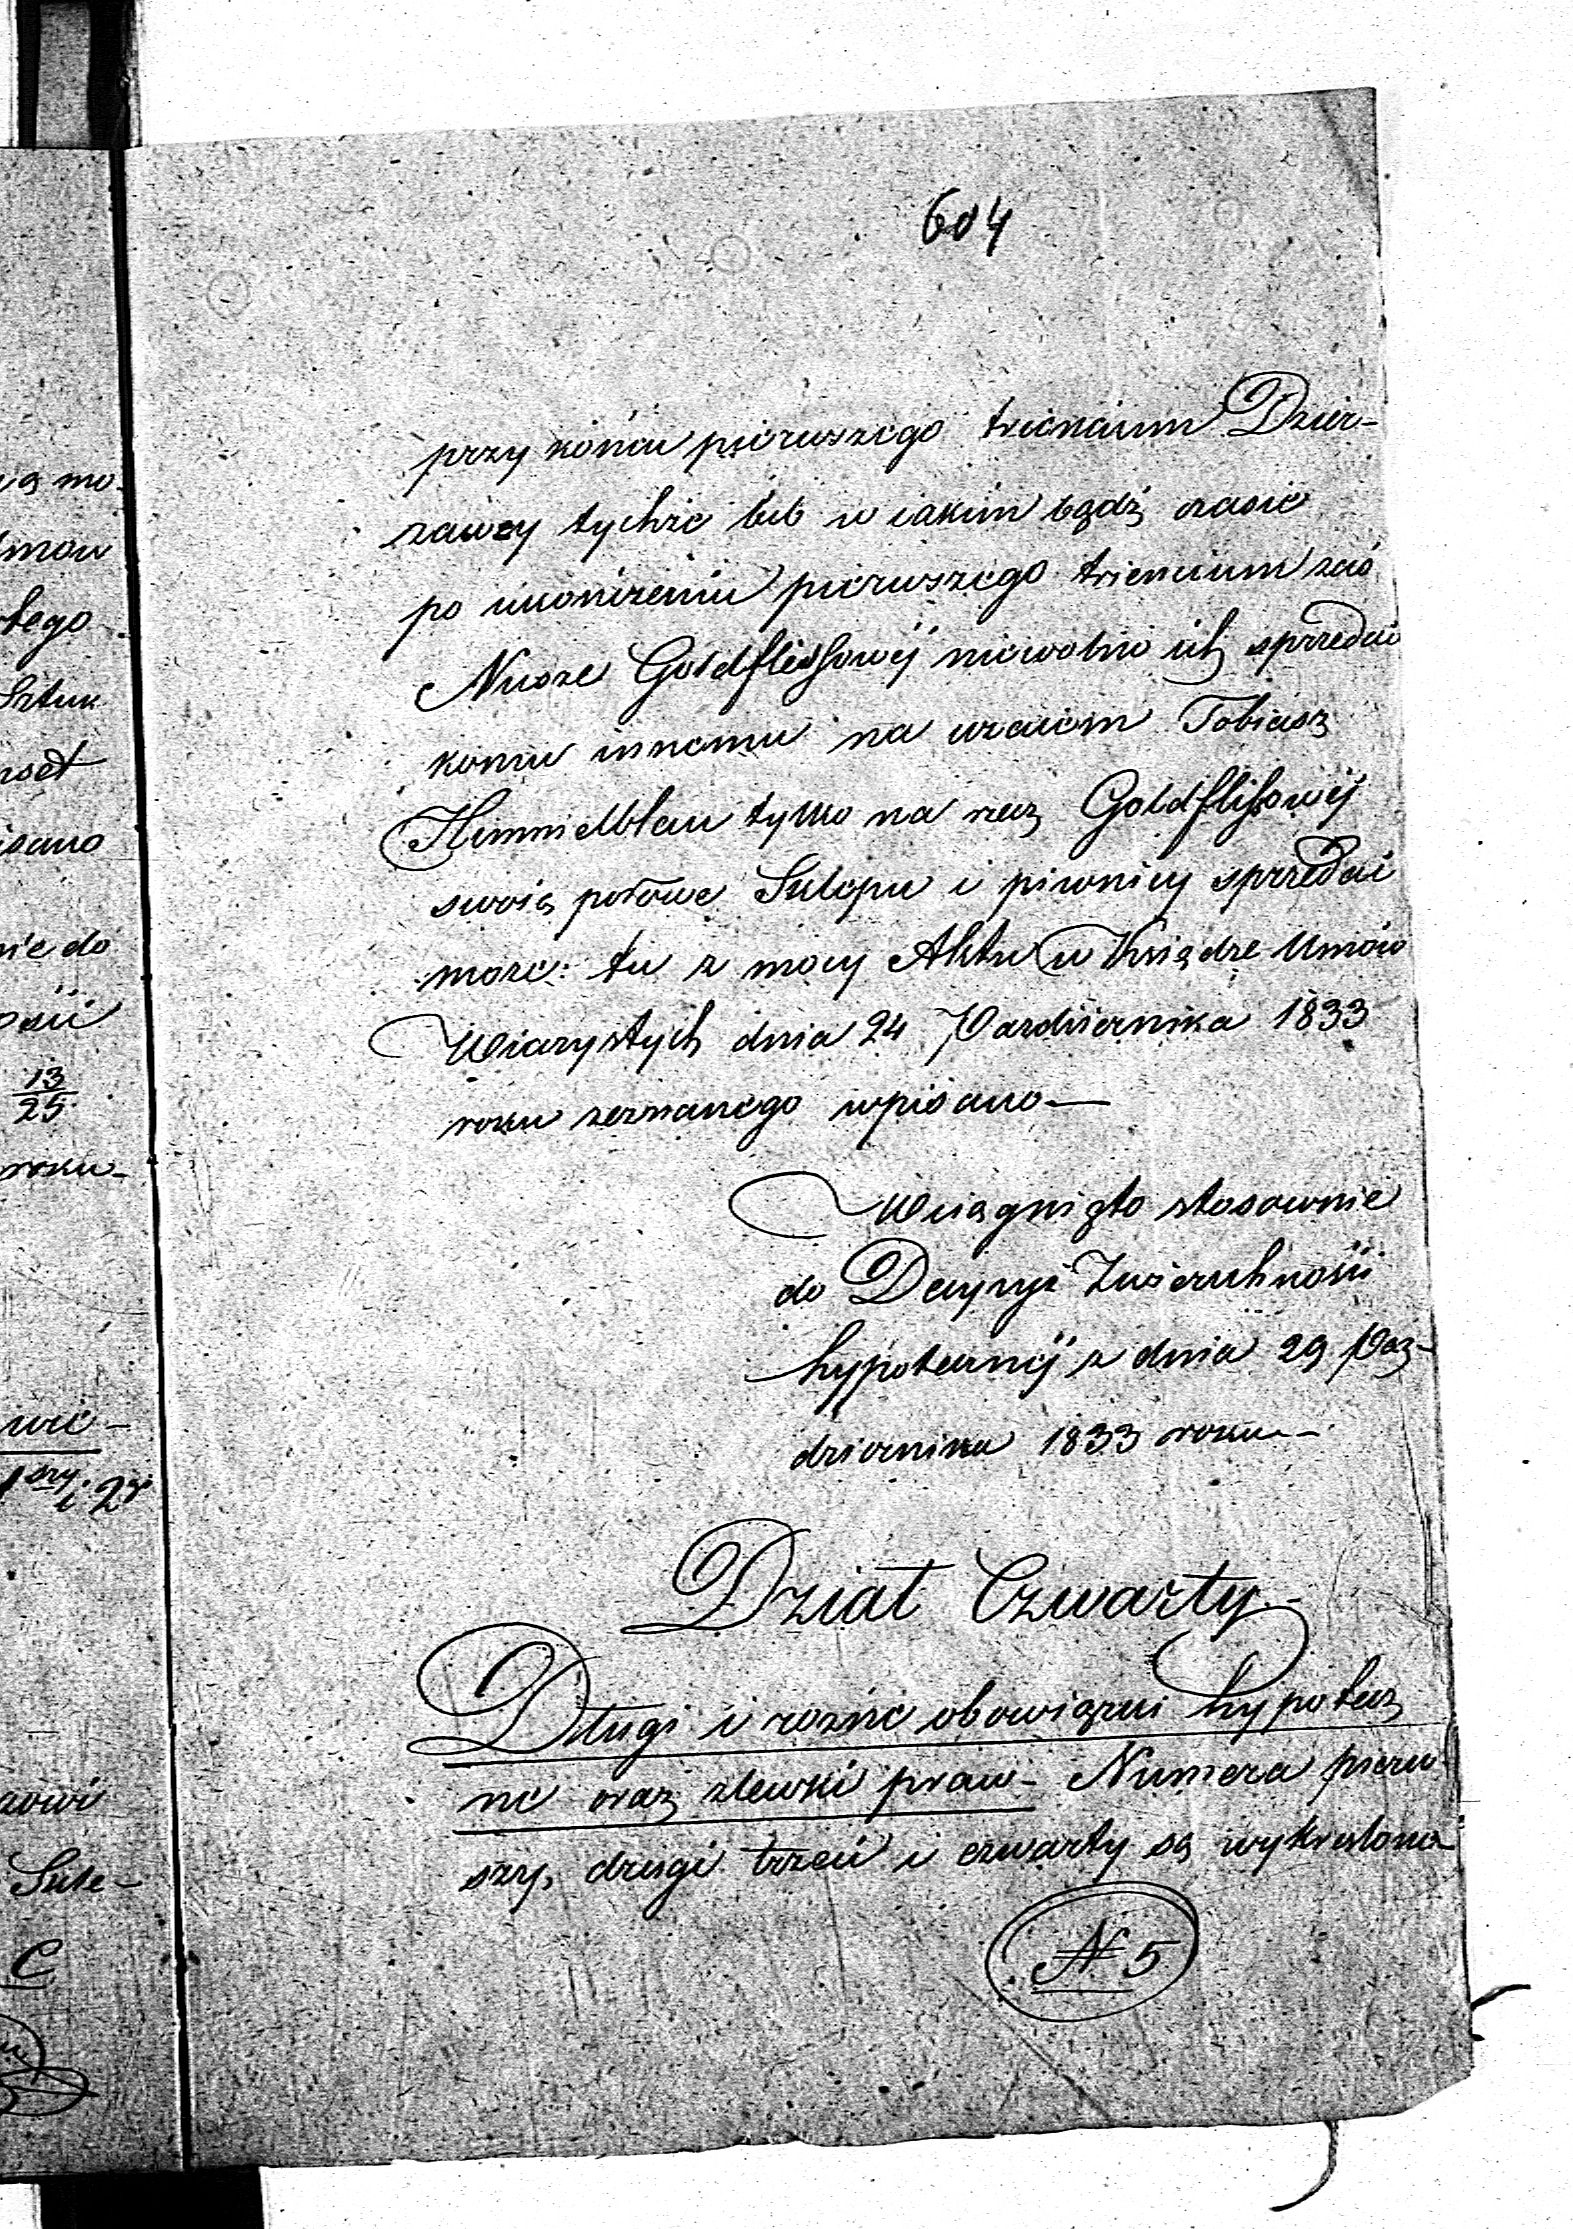 604
przy końcu pierwszego triennium Dzier-
zawzy tychże lub w iakim bądź czasie
po ukończeniu pierwszego triennium zaś
Nusze Goldfliessowéj niewolno ich sprzedać
komu innemu na wzaiem Tobiasz
Himmelblau tylko na rzecz Goldflisowéj
swoią połowe Sklepu i piwnicy sprzedać
może: tu z mocy Aktu w Księdze Umów
Wieczystych dnia 24 Pazdziernika 1833
roku zeznanego wpisano—
Wciągnięto stosownie
do Decyzyi Zwierzchności
hypotecznéj z dnia 29 Paz-
dziernika 1833 roku—
Dział Czwarty—
Długi i rożne obowiązki hypotecz
ne oraz zlewki praw— Numera pierw
szy, drugi trzeci i czwarty są wykreslone
N 5
ą mo-
umow
tego
Sztuk
isano
nie do
ości
13
25
roku-
wie-
1szy i 2gi
zowi
Skle-
C